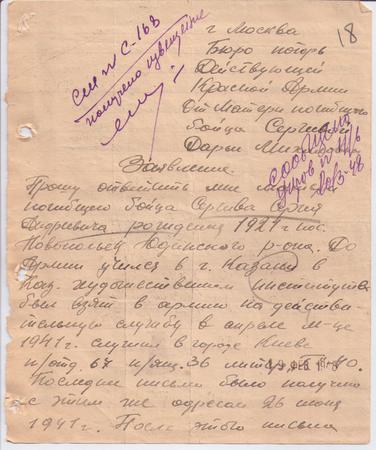 18
г Москва
Бюро потерь
Действующей
Красной Армии
От Матери погибшего
бойца Сергеевой
Дарьи
см № С-168
получено извещение
сообщено
20/3-48
Заявление.
Прошу ответить мне матери
погибшего бойца Сергеева
Андреевича рождения 1921 г пос.
Новополье Юдинского р-она. До
Армии учился в г. Казани в
Каз. художественном институте
был взят в армию на действи-
тельную службу в апреле м-це
1941 г. служил в городе Киеве
п/отд. 67 п/ящ. 36 литер
Последнее письмо было получено
с этим же адресом 26 июня
1941 г. После этого письма